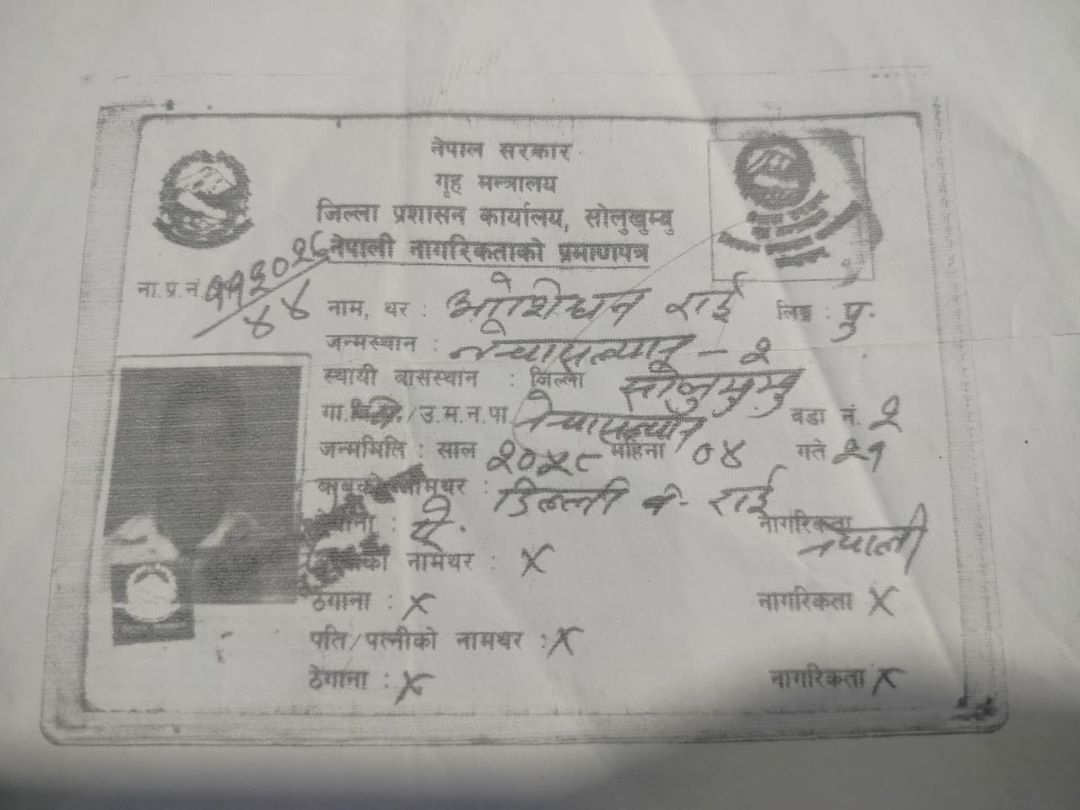 नेपाल सरकार
गृह मन्त्रालय
जिल्ला प्रशासन कार्यालय, सोलुखुम्बु
नेपाली नागरिकताको प्रमाणपत्र
ना.प्र.नं.
नाम, थर : राई लिङ्ग : पु.
जन्मस्थान : नेचासल्यान - २
स्थायी बासस्थान : जिल्ला सोलुखुम्बु
/उ.म.न.पा नेचासल्यान वडा नं. २
जन्ममिति : साल महिना ०४ गते २१
नामथर : डिल्ली ब. राई
ठेगाना : ऐ. नागरिकता नेपाली
नामथर : X
ठेगाना : X नागरिकता X
पति/पत्नीको नामथर : X
ठेगाना : X नागरिकता X